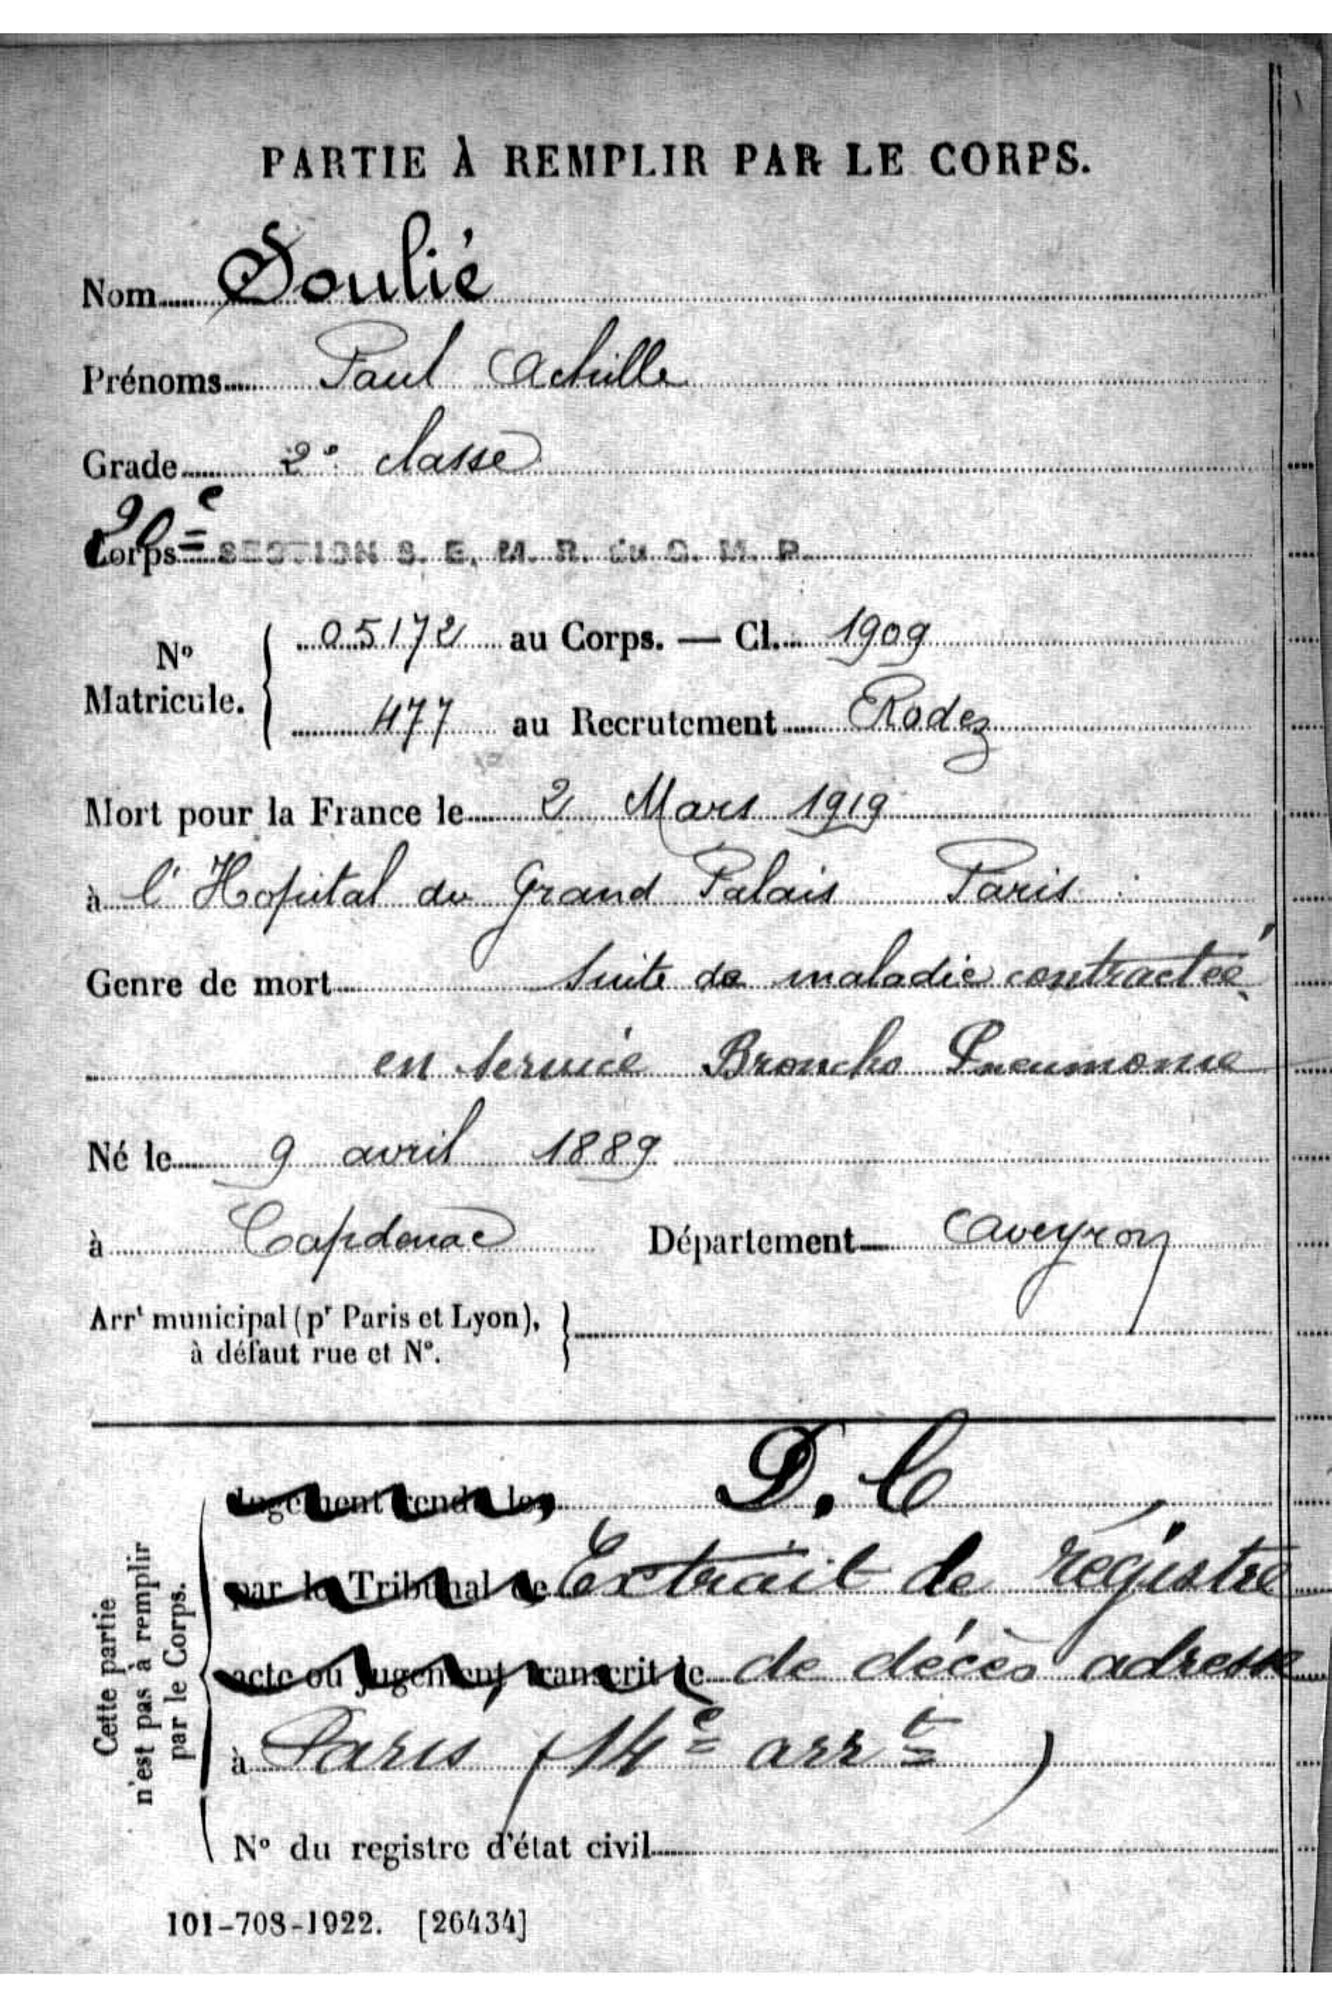 PARTIE À REMPLIR PAR LE CORPS.
Nom Soulié
Prénoms Paul Achille
Grade 2e classe
Corps 20e SECTION S. E. M. R. du G. M. P.
No Matricule. 05172 au Corps. — Cl. 1909
477 au Recrutement Rodez
Mort pour la France le 2 Mars 1919
à l'Hopital du Grand Palais Paris
Genre de mort Suite de maladie contractée
en Service Broncho Pneumonie
Né le 9 avril 1889
à Capdenac Département Aveyron
Arrt municipal (pr Paris et Lyon),
à défaut rue et No.
Cette partie
n'est pas à remplir
par le Corps.
Jugement rendu le D. C
par le Tribunal de Extrait de régistre
acte ou jugement transcrit le de décès adresse
à Paris (14e arrt)
No du registre d'état civil
101-708-1922. [26434]